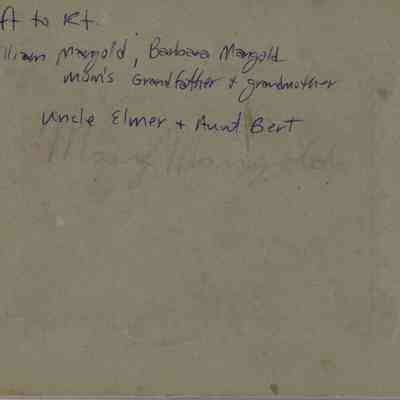 to Rt.
William Mangold, Barbara Mangold
Mom's Grandfather + grandmother
Uncle Elmer + Aunt Bert
Mary Mangold